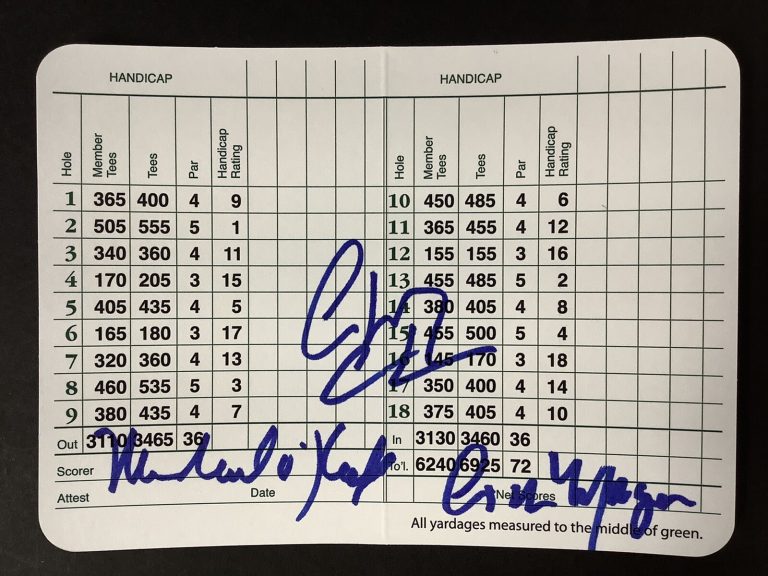 HANDICAP
Hole Member Tees Tees Par Handicap Rating
1 365 400 4 9
2 505 555 5 1
3 340 360 4 11
4 170 205 3 15
5 405 435 4 5
6 165 180 3 17
7 320 360 4 13
8 460 535 5 3
9 380 435 4 7
Out 3110 3465 36
Scorer
Attest Date
HANDICAP
Hole Member Tees Tees Par Handicap Rating
10 450 485 4 6
11 365 455 4 12
12 155 155 3 16
13 455 485 5 2
14 380 405 4 8
15 455 500 5 4
16 145 170 3 18
17 350 400 4 14
18 375 405 4 10
In 3130 3460 36
To'l. 6240 6925 72
Net Scores
All yardages measured to the middle of green.